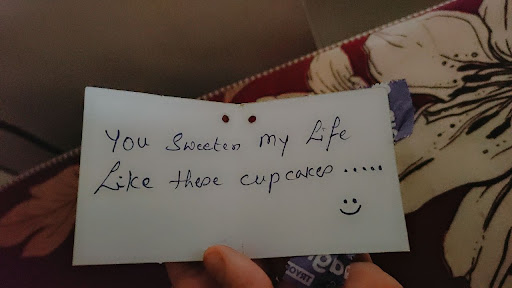 You Sweeten my Life
Like these cupcakes.....